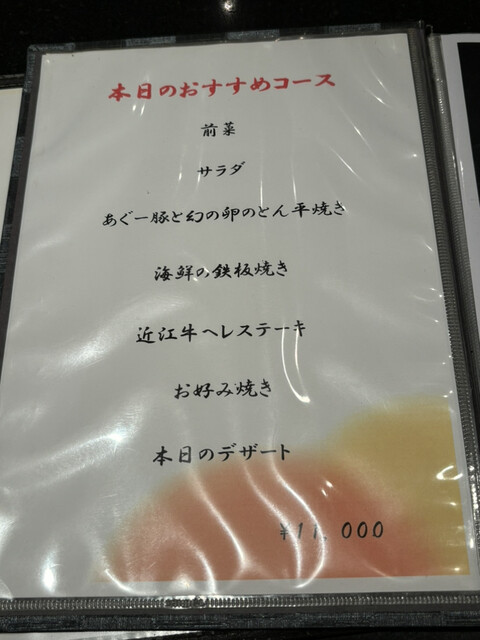 本日のおすすめコース
前菜
サラダ
あぐー豚と幻の卵のとん平焼き
海鮮の鉄板焼き
近江牛ヘレステーキ
お好み焼き
本日のデザート
¥11,000